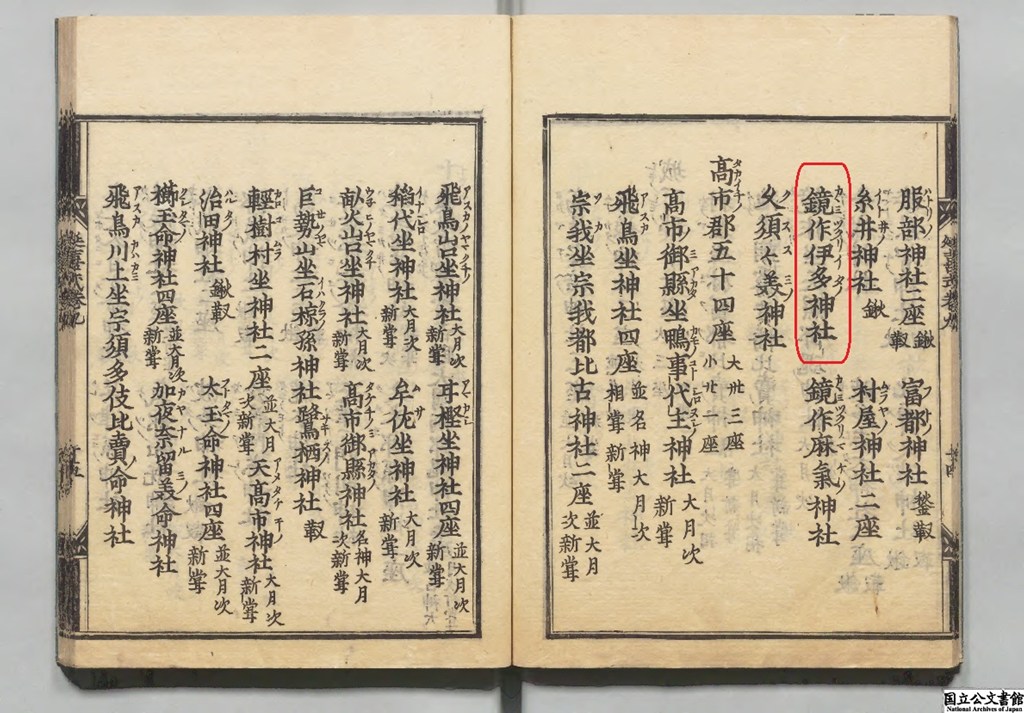 服部神社二座 鍬靫 富都神社 鍬靫
糸井神社 鍬 村屋神社二座
鏡作伊多神社 鏡作麻氣神社
久須々美神社
高市郡五十四座 大卅三座 小廿一座
高市御縣坐鴨事代主神社 大月次新甞
飛鳥坐神社四座 並名神大月次相甞新甞
宗我坐宗我都比古神社二座 並大月次新甞
飛鳥山口坐神社 大月次新甞 耳梶坐神社四座 並大月次新甞
稻代坐神社 大月次新甞 牟佐坐神社 大月次新甞
畝火山口坐神社 大月次新甞 高市御縣神社 名神大月次新甞
巨勢山坐石椋孫神社 鷺栖神社 靫
輕樹村坐神社二座 並大月次新甞 天高市神社 大月次新甞
治田神社 鍬靫 太玉命神社四座 並大月次新甞
櫛玉命神社四座 並大月次新甞 加夜奈留美命神社
飛鳥川上坐宇須多伎比賣命神社
国立公文書館
National Archives of Japan